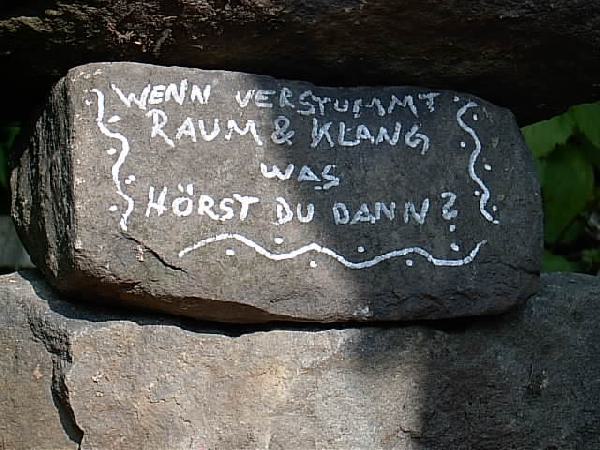 WENN VERSTUMMT
RAUM & KLANG
WAS
HÖRST DU DANN?